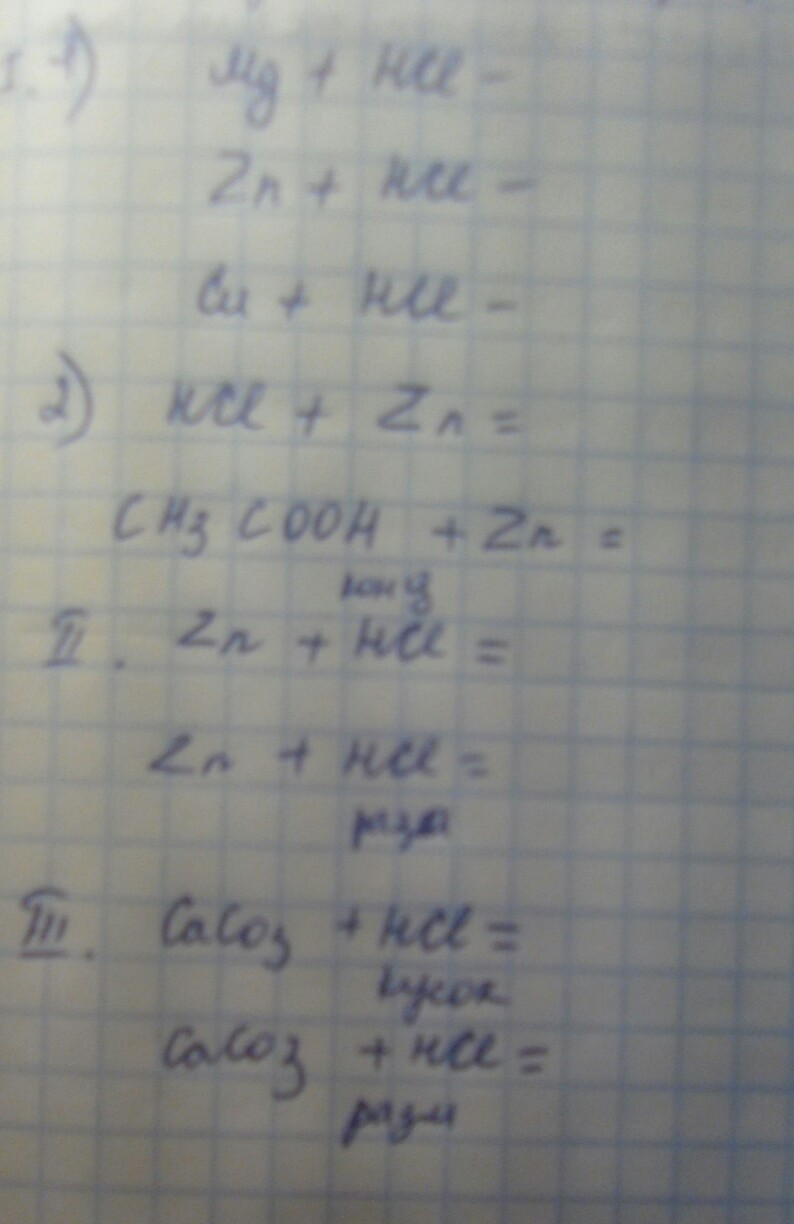 I. 1) Mg + HCl -
Zn + HCl -
Cu + HCl -
2) HCl + Zn =
CH3COOH + Zn =
конц
II. Zn + HCl =
Zn + HCl =
разм
III. CaCO3 + HCl =
кусок
CaCO3 + HCl =
разм